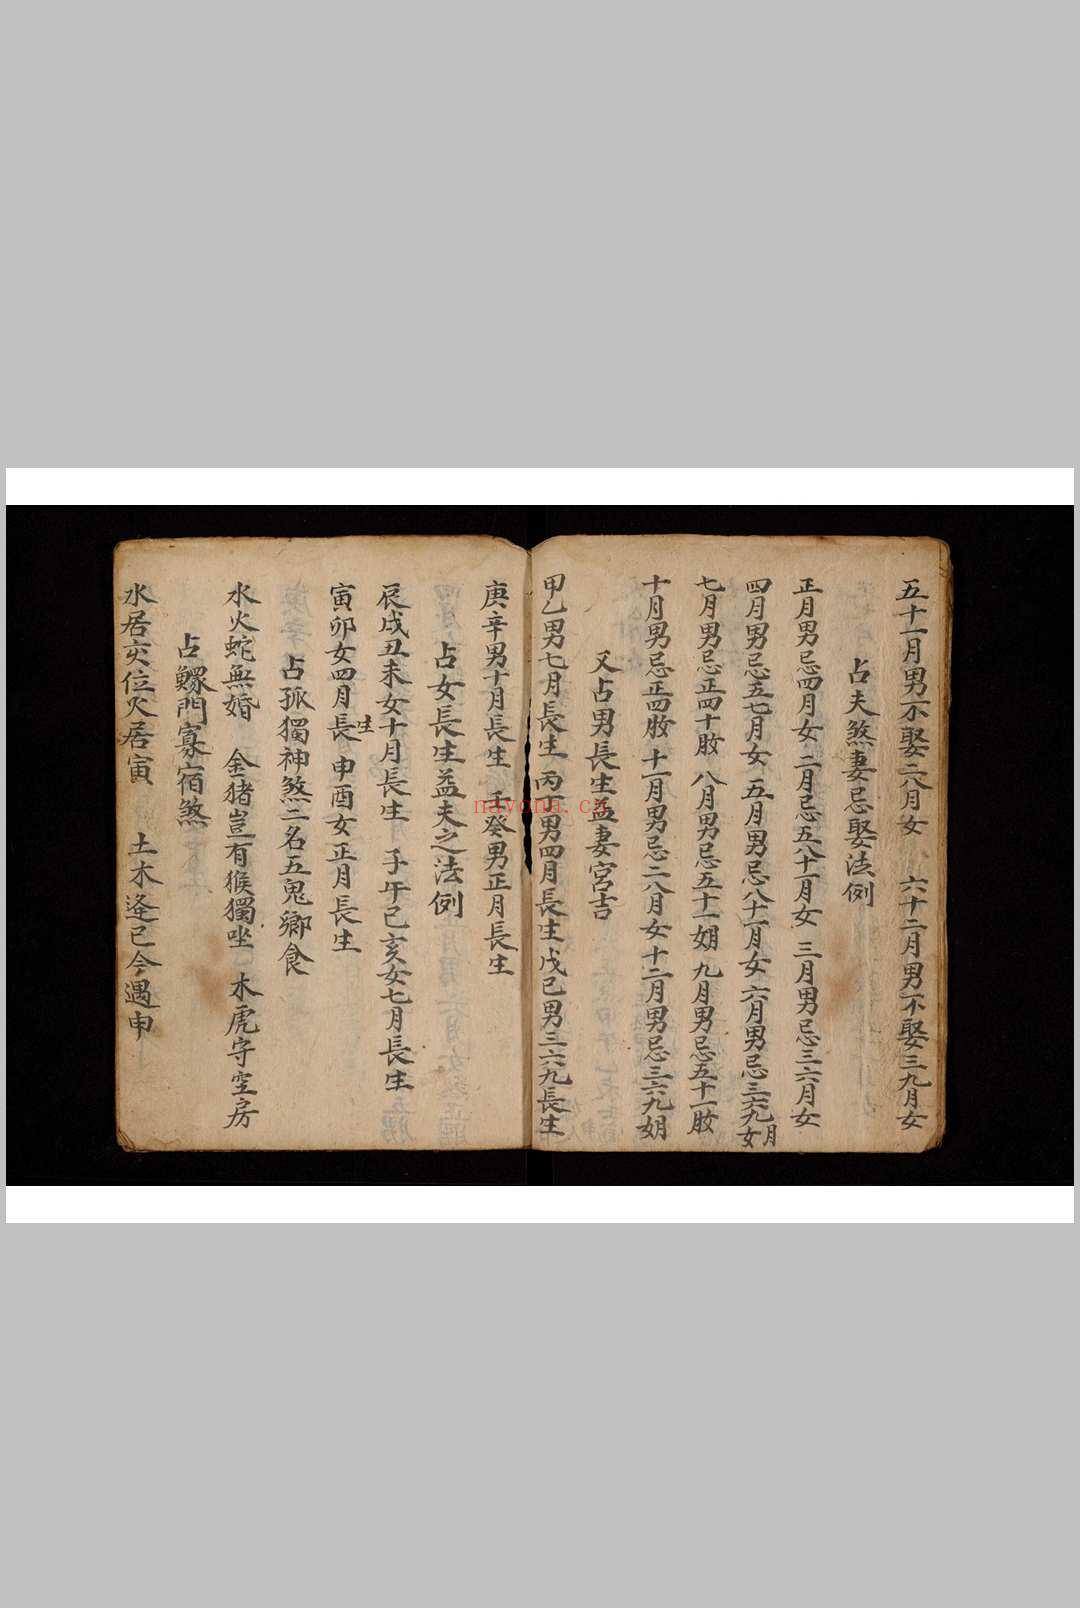 五十一月男不娶二八月女　六十二月男不娶三九月女
占夫煞妻忌娶法例
正月男忌四月女　二月忌五八十一月女　三月男忌三六月女
四月男忌五七月女　五月男忌八十一月女　六月男忌三六九月女
七月男忌正四十　八月男忌五十一　九月男忌五十一
十月男忌正四　十一月男忌二八月女　十二月男忌三六九
又占男長生益妻宮吉
甲乙男七月長生　丙丁男四月長生　戊己男三六九長生
庚辛男十月長生　壬癸男正月長生
占女長生益夫之法例
辰戌丑未女十月長生　子午巳亥女七月長生
寅卯女四月長生　申酉女正月長生
占孤獨神煞二名五鬼鄉食
水火蛇無婚　金猪豈有猴獨坐　木虎守空房
占鰥門寡宿煞
水居亥位火居寅　土木逢巳今遇申
navona.cn